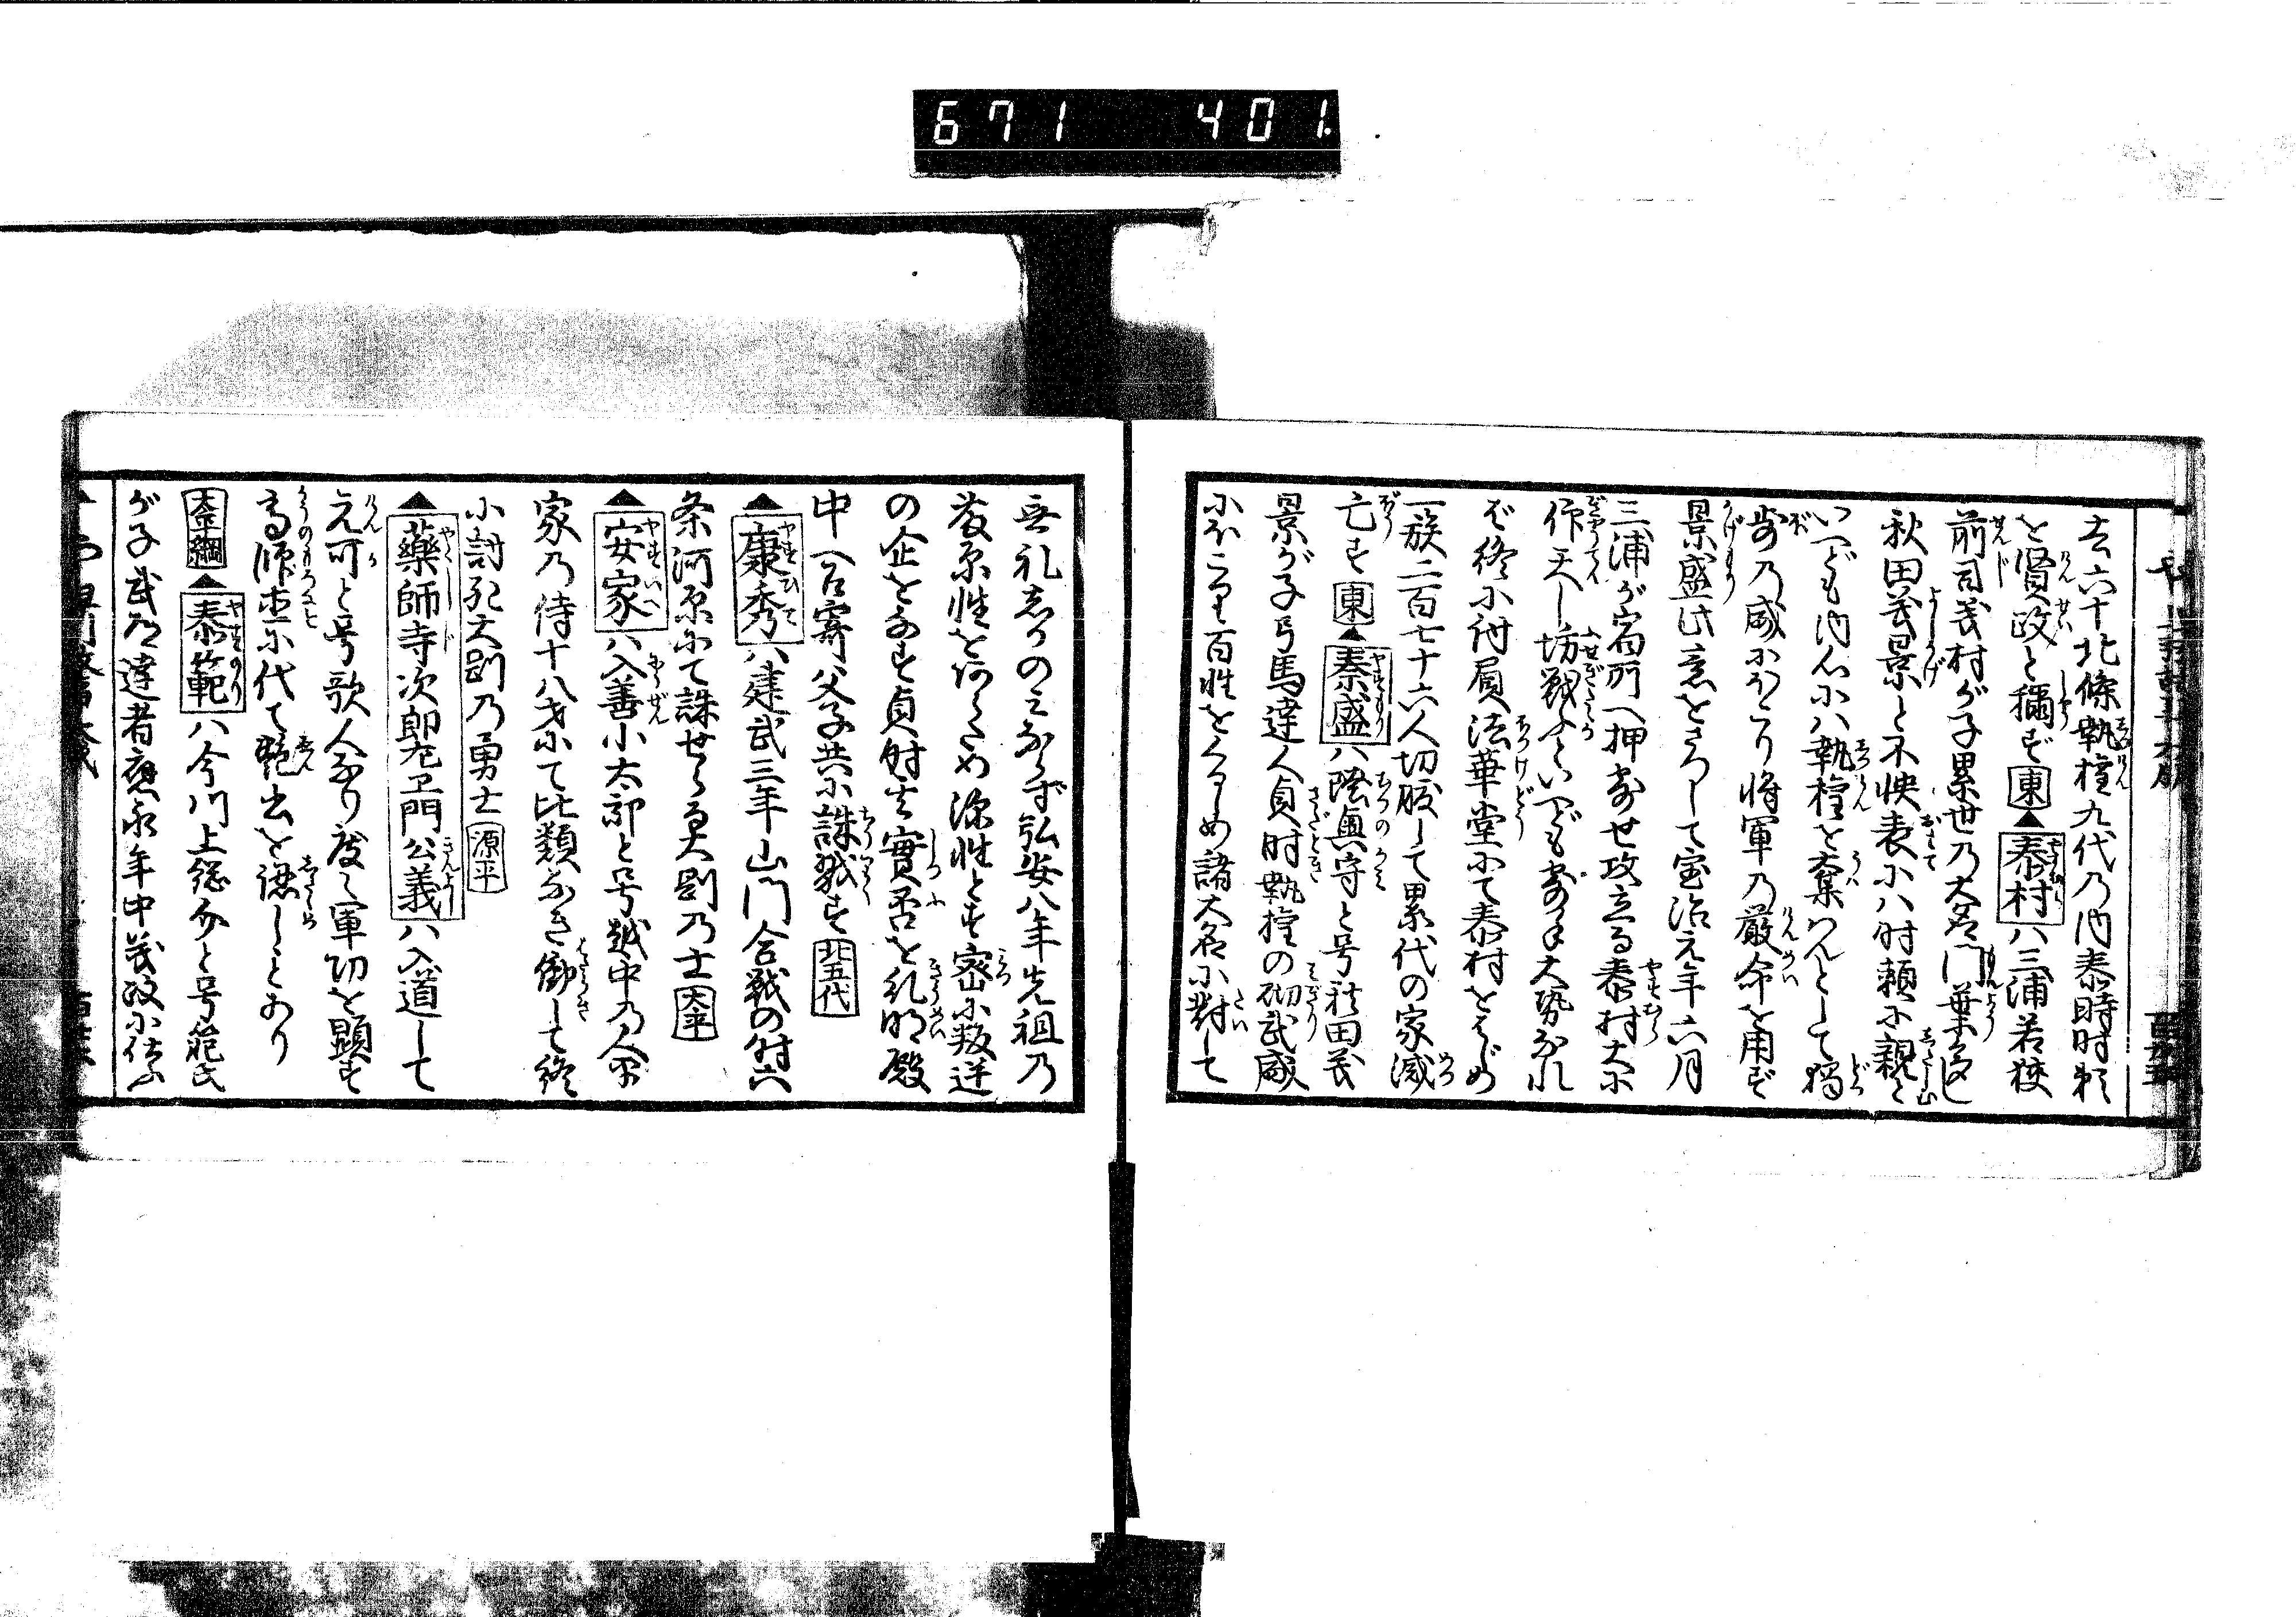 671 401.
去六十北條執権九代乃内泰時時頼
を賢政と稱ず東▲泰村ハ三浦若狭
前司義村が子累世乃大名門葉多し
秋田義景と不快表にハ時頼に親と
いへども内心にハ執権を奪ハんとして獨
歩乃威にほこり将軍乃嚴命を用ず
景盛此意をさつして宝治元年六月
三浦が宿所へ押寄せ攻立る泰村大に
仰天し坊戦ふといへども寄手大勢なれ
ば終に討負法華堂にて泰村をはじめ
一族二百七十六人切腹して累代の家滅
亡す東▲泰盛ハ陸奥守と号秋田義
景が子弓馬達人貞時執権の砌武威
にほこり百姓をくるしめ諸大名に對して
無礼志かのみならず弘安八年先祖乃
藤原性をあらため源性とす密に叛逆
の企をなす貞時其實否を糺明殿
中へ召寄父子共に誅戮す北五代
▲康秀ハ建武三年山門合戦の時六
条河原にて誅せらる大剛乃士太平
▲安家ハ入善小太郎と号越中乃人平
家乃侍十八才にて比類なき働して終
に討死大剛乃勇士源平
▲藥師寺次郎左卫門公義ハ入道して
元可と号歌人なり度々軍功を顕す
高師直に代て艶書を認しとあり
▲泰範ハ今川上総介と号範氏
が子武道達者應永年中義政に仕ふ